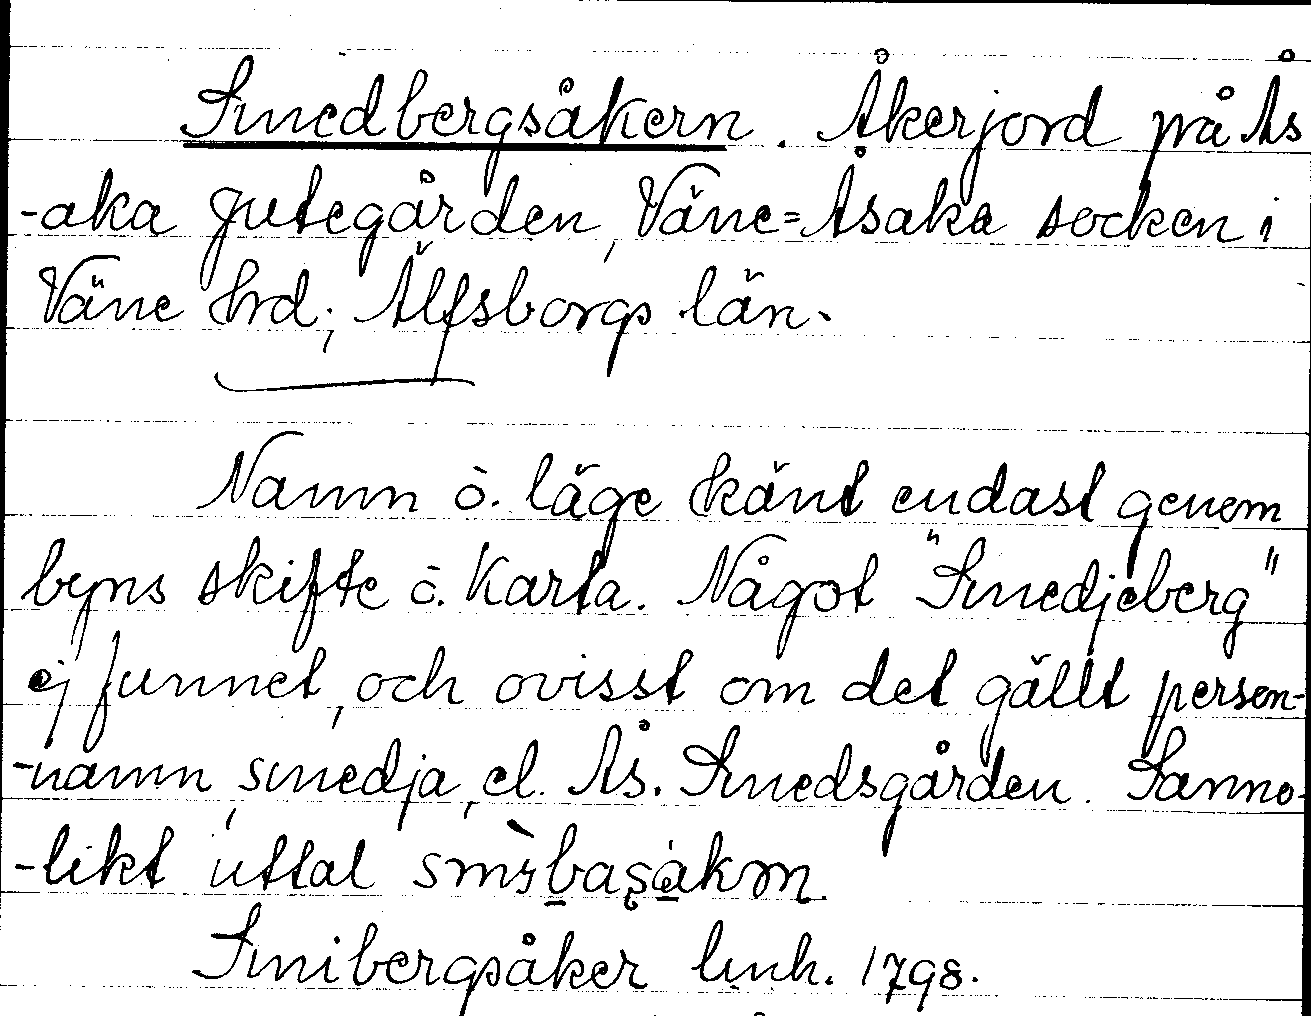 Smedbergsåkern. Åkerjord på Ås
-aka Jutegården, Väne=Åsaka socken i
Väne hrd; Älfsborgs län.
Namn o. läge känt endast genom
byns skifte o. Karta. Något "Smedjeberg"
ej funnet, och ovisst om det gällt person-
-namn, smedja, el. Ås. Smedsgården. Sanno-
-likt uttal
Smibergsåker lmh. 1798.